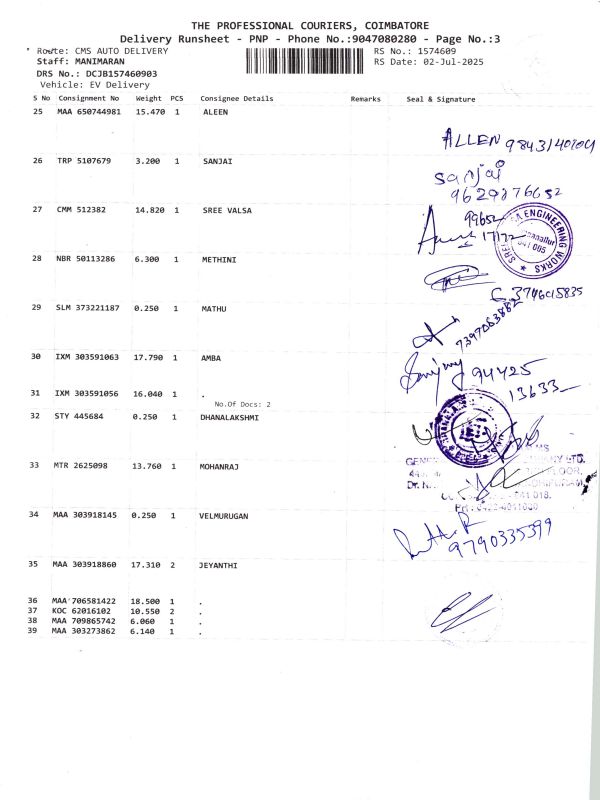 THE PROFESSIONAL COURIERS, COIMBATORE
Delivery Runsheet - PNP - Phone No.:9047080280 - Page No.:3
Route: CMS AUTO DELIVERY RS No.: 1574609
Staff: MANIMARAN RS Date: 02-Jul-2025
DRS No.: DCJB157460903
Vehicle: EV Delivery
S No Consignment No Weight PCS Consignee Details Remarks Seal & Signature
25 MAA 650744981 15.470 1 ALEEN
ALLEN
26 TRP 5107679 3.200 1 SANJAI
Sanjai
9629876652
27 CMM 512382 14.820 1 SREE VALSA
99652
17172
ENGINEERING WORKS
641 005
28 NBR 50113286 6.300 1 METHINI
29 SLM 373221187 0.250 1 MATHU
30 IXM 303591063 17.790 1 AMBA
94425
13633
31 IXM 303591056 16.040 1 .
No.Of Docs: 2
32 STY 445684 0.250 1 DHANALAKSHMI
33 MTR 2625098 13.760 1 MOHANRAJ
34 MAA 303918145 0.250 1 VELMURUGAN
9790335399
35 MAA 303918860 17.310 2 JEYANTHI
36 MAA 706581422 18.500 1 .
37 KOC 62016102 10.550 2 .
38 MAA 709865742 6.060 1 .
39 MAA 303273862 6.140 1 .